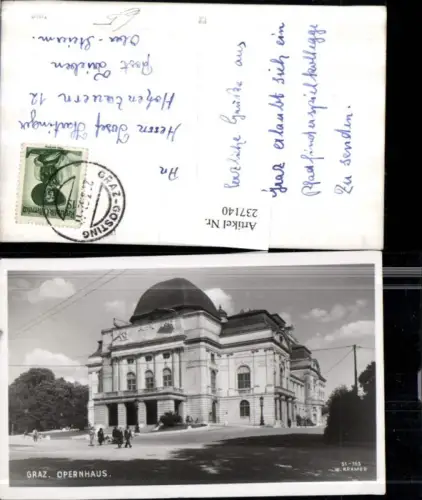 An
Herrn Josef
Hohentauern 12
Post Trieben
Ober-Steierm.
herzliche Grüße aus
Graz erlaubt sich ein
Pfadfinderspielkollege
zu senden.
GRAZ-GÖSTING
Artikel Nr.
237140
GRAZ. OPERNHAUS.
51-163